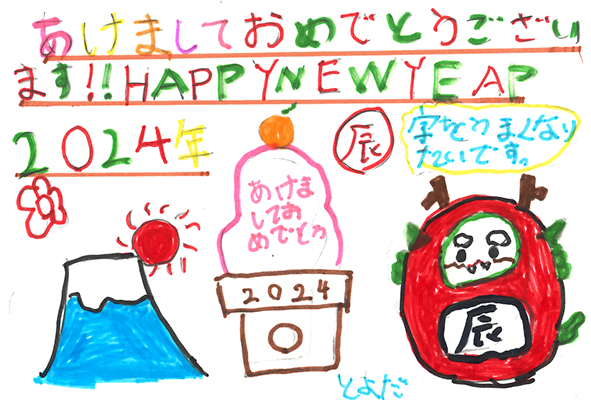 あけましておめでとうござい
ます!!HAPPYNEWYEAP
2024年
辰
字をうまくなり
たいです。
あけま
してお
めでとう
2024
辰
とよだ